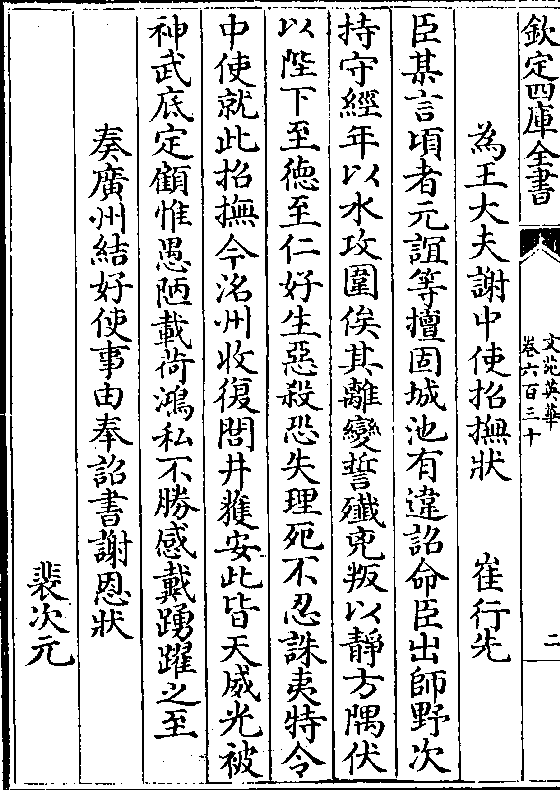 欽定四庫全書
文苑英華
卷六百三十
二
為王大夫謝中使招撫狀 崔行先
臣某言頃者元誼等擅固城池有違詔命臣出師野次
持守經年以水攻圍俟其離變誓殲兇叛以靜方隅伏
以陛下至德至仁好生惡殺恐失理死不忍誅夷特令
中使就此招撫今洺州收復閭井獲安此皆天威光被
神武底定顧惟愚陋載荷鴻私不勝感戴踴躍之至
奏廣州結好使事由奉詔書謝恩狀
裴次元